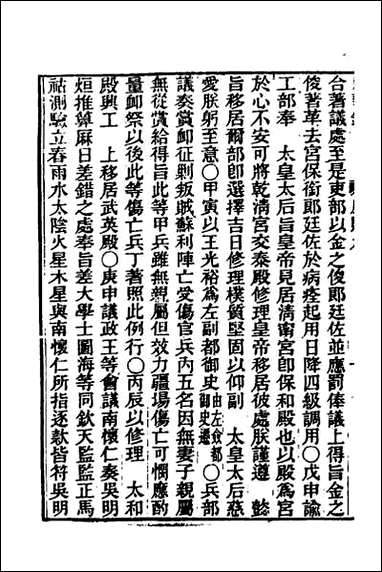 合著議處至是吏部以金之俊郎廷佐並應罰俸議上得旨金之
俊著革去宮保銜郎廷佐於病痊起用日降四級調用○戊申諭
工部奉　太皇太后旨皇帝見居清甯宮卽保和殿也以殿爲宮
於心不安可將乾清宮交泰殿修理皇帝移居彼處朕謹遵　懿
旨移居爾部卽選擇吉日修理樸質堅固以仰副　太皇太后慈
愛朕躬至意○甲寅以王光裕爲左副都御史由左僉都御史遷○兵部
議奏賞卹征剿叛賊蘇利陣亡受傷官兵內五名因無妻子親屬
無從賞給得旨此等甲兵雖無親屬但效力疆場傷亡可憫應酌
量卹祭以後此等傷亡兵丁著照此例行○丙辰以修理　太和
殿興工　上移居武英殿○庚申議政王等會議南懷仁奏吳明
烜推算厤日差錯之處奉旨差大學士圖海等同欽天監監正馬
祜測驗立春雨水太陰火星木星與南懷仁所指逐款皆符吳明